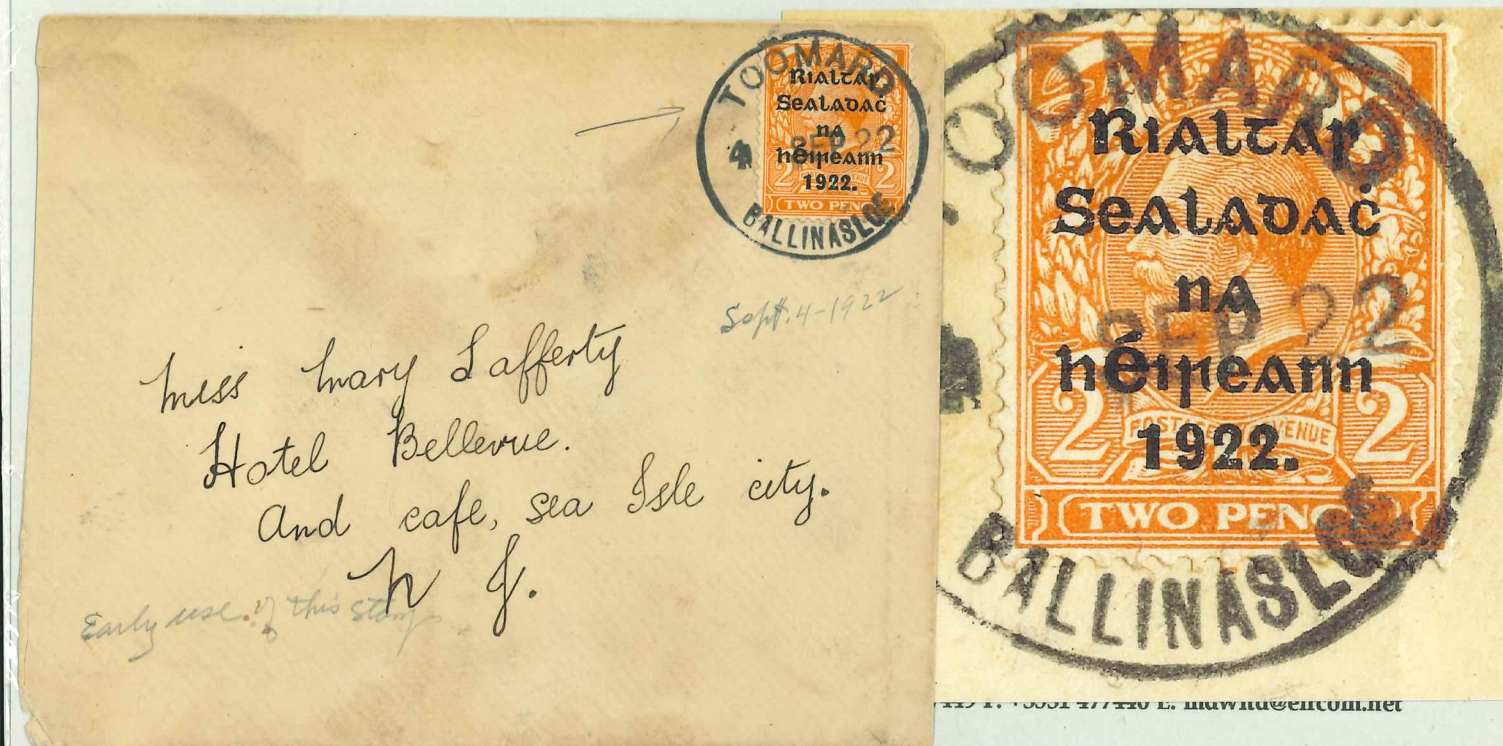 TOOMARD
Rialtas
Sealadaċ
na
hÉireann
1922.
4 SEP 22
2 2
TWO PENCE
BALLINASLOE
Sept. 4-1922
Miss Mary Lafferty
Hotel Bellevue.
And cafe, sea Isle city.
N J.
Early use of this stamp
TOOMARD
Rialtas
Sealadaċ
na
hÉireann
1922.
SEP 22
2 POSTAGE REVENUE 2
TWO PENCE
BALLINASLOE